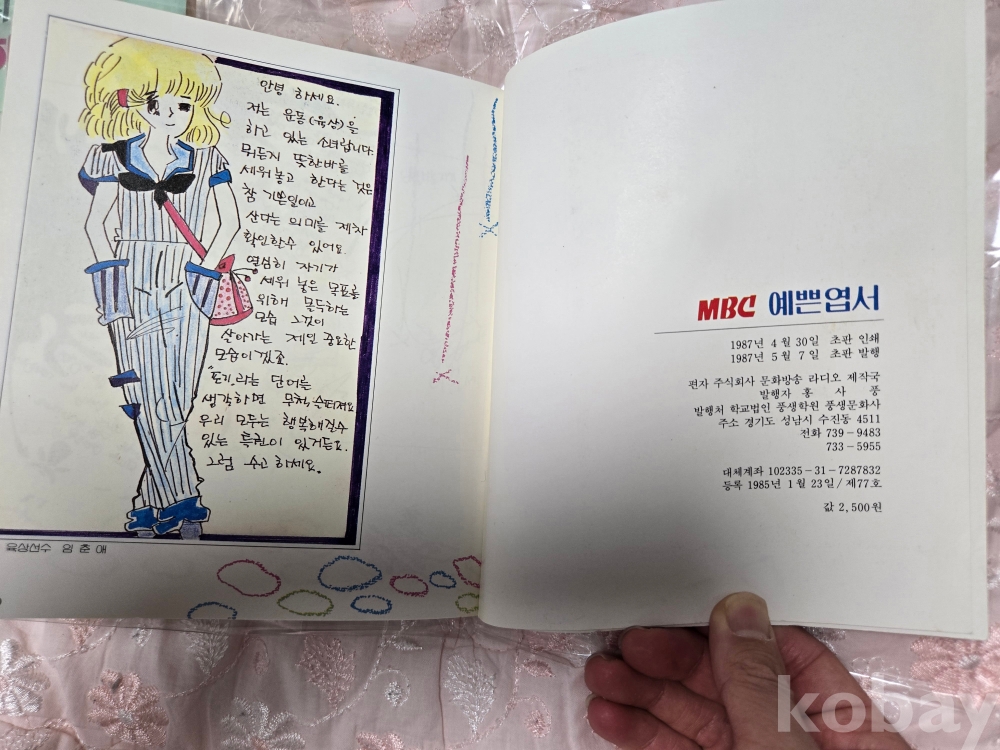 안녕 하세요.
저는 운동(육상)을
하고 있는 소녀랍니다
뭐든지 뜻한바를
세워놓고 한다는 것은
참 기쁜일이고
산다는 의미를 재차
확인할수 있어요.
열심히 자기가
세워 놓은 목표를
위해 모두하는
모습 그것이
살아가는 제일 중요한
모습이겠죠.
"포기"라는 단어를
생각하면 무척 슬퍼져요
우리 모두는 행복해질수
있는 특권이 있거든요.
그럼 수고 하세요.
육상선수 임 춘 애
MBC 예쁜엽서
1987년 4월 30일 초판 인쇄
1987년 5월 7일 초판 발행
편자 주식회사 문화방송 라디오 제작국
발행자 홍 사 풍
발행처 학교법인 풍생학원 풍생문화사
주소 경기도 성남시 수진동 4511
전화 739-9483
733-5955
대체계좌 102335-31-7287832
등록 1985년 1월 23일/제77호
값 2,500원
kobay